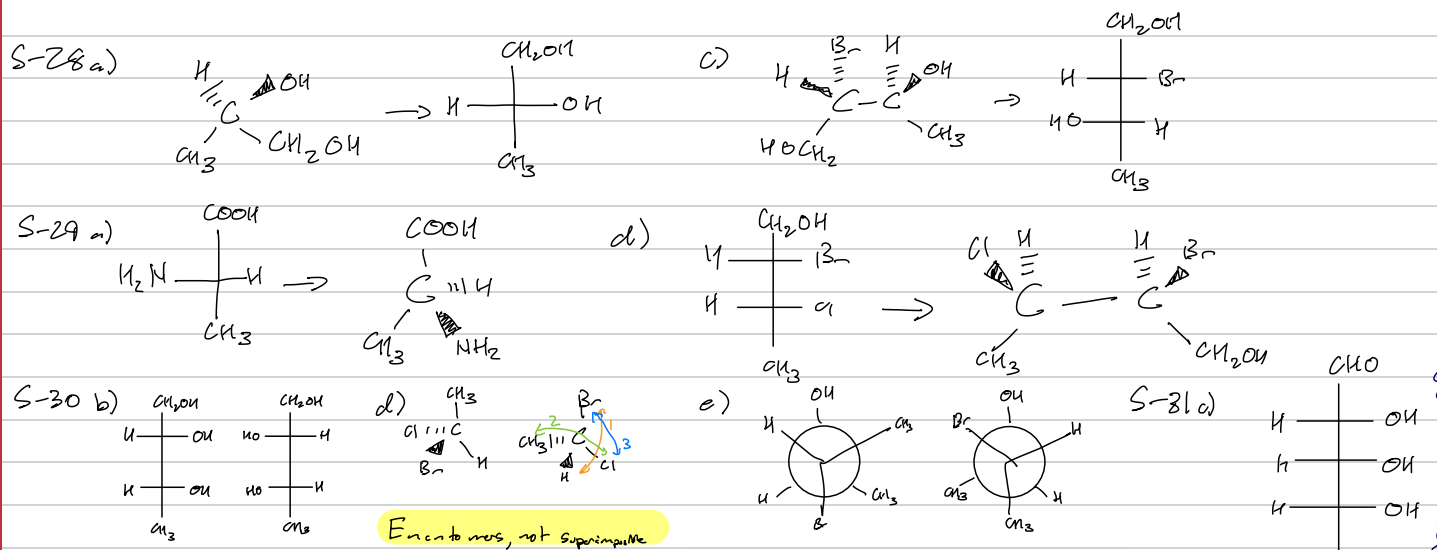 S-28a)
H
OH
C
CH3
CH2OH
→
CH2OH
H
OH
CH3
c)
Br H
H
OH
C-C
HOCH2
CH3
→
CH2OH
H Br
HO H
CH3
S-29 a)
COOH
H2N H
CH3
→
COOH
C H
CH3
NH2
d)
CH2OH
H Br
H Cl
CH3
→
Cl H H Br
C C
CH3
CH2OH
S-30 b)
CH2OH
H OH
H OH
CH3
CH2OH
HO H
HO H
CH3
d)
CH3
Cl C
Br
H
Br
CH3 C
H Cl
2
1
3
Enantomers, not superimposable
e)
OH
H CH3
H CH3
Br
OH
Br H
CH3 H
CH3
S-31a)
CHO
H OH
H OH
H OH